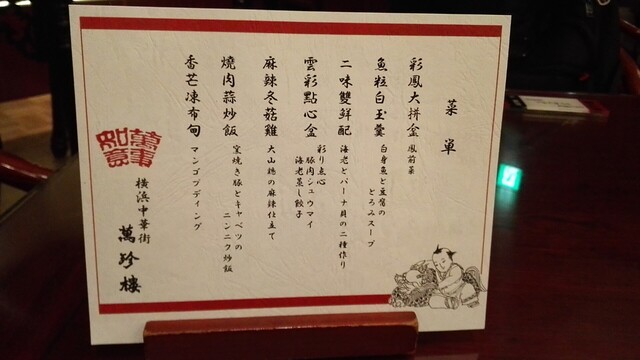 菜単
彩鳳大拼盆 鳳前菜
魚粒白玉羹 白身魚と豆腐の
とろみスープ
二味雙鮮配 海老とパーナ貝の二種作り
雲彩點心盆 彩り点心
豚肉シュウマイ
海老蒸し餃子
麻辣冬菇雞 大山鶏の麻辣仕立て
燒肉蒜炒飯 窯焼き豚とキャベツの
ニンニク炒飯
香芒凍布甸 マンゴプディング
萬事如意
横浜中華街
萬珍樓